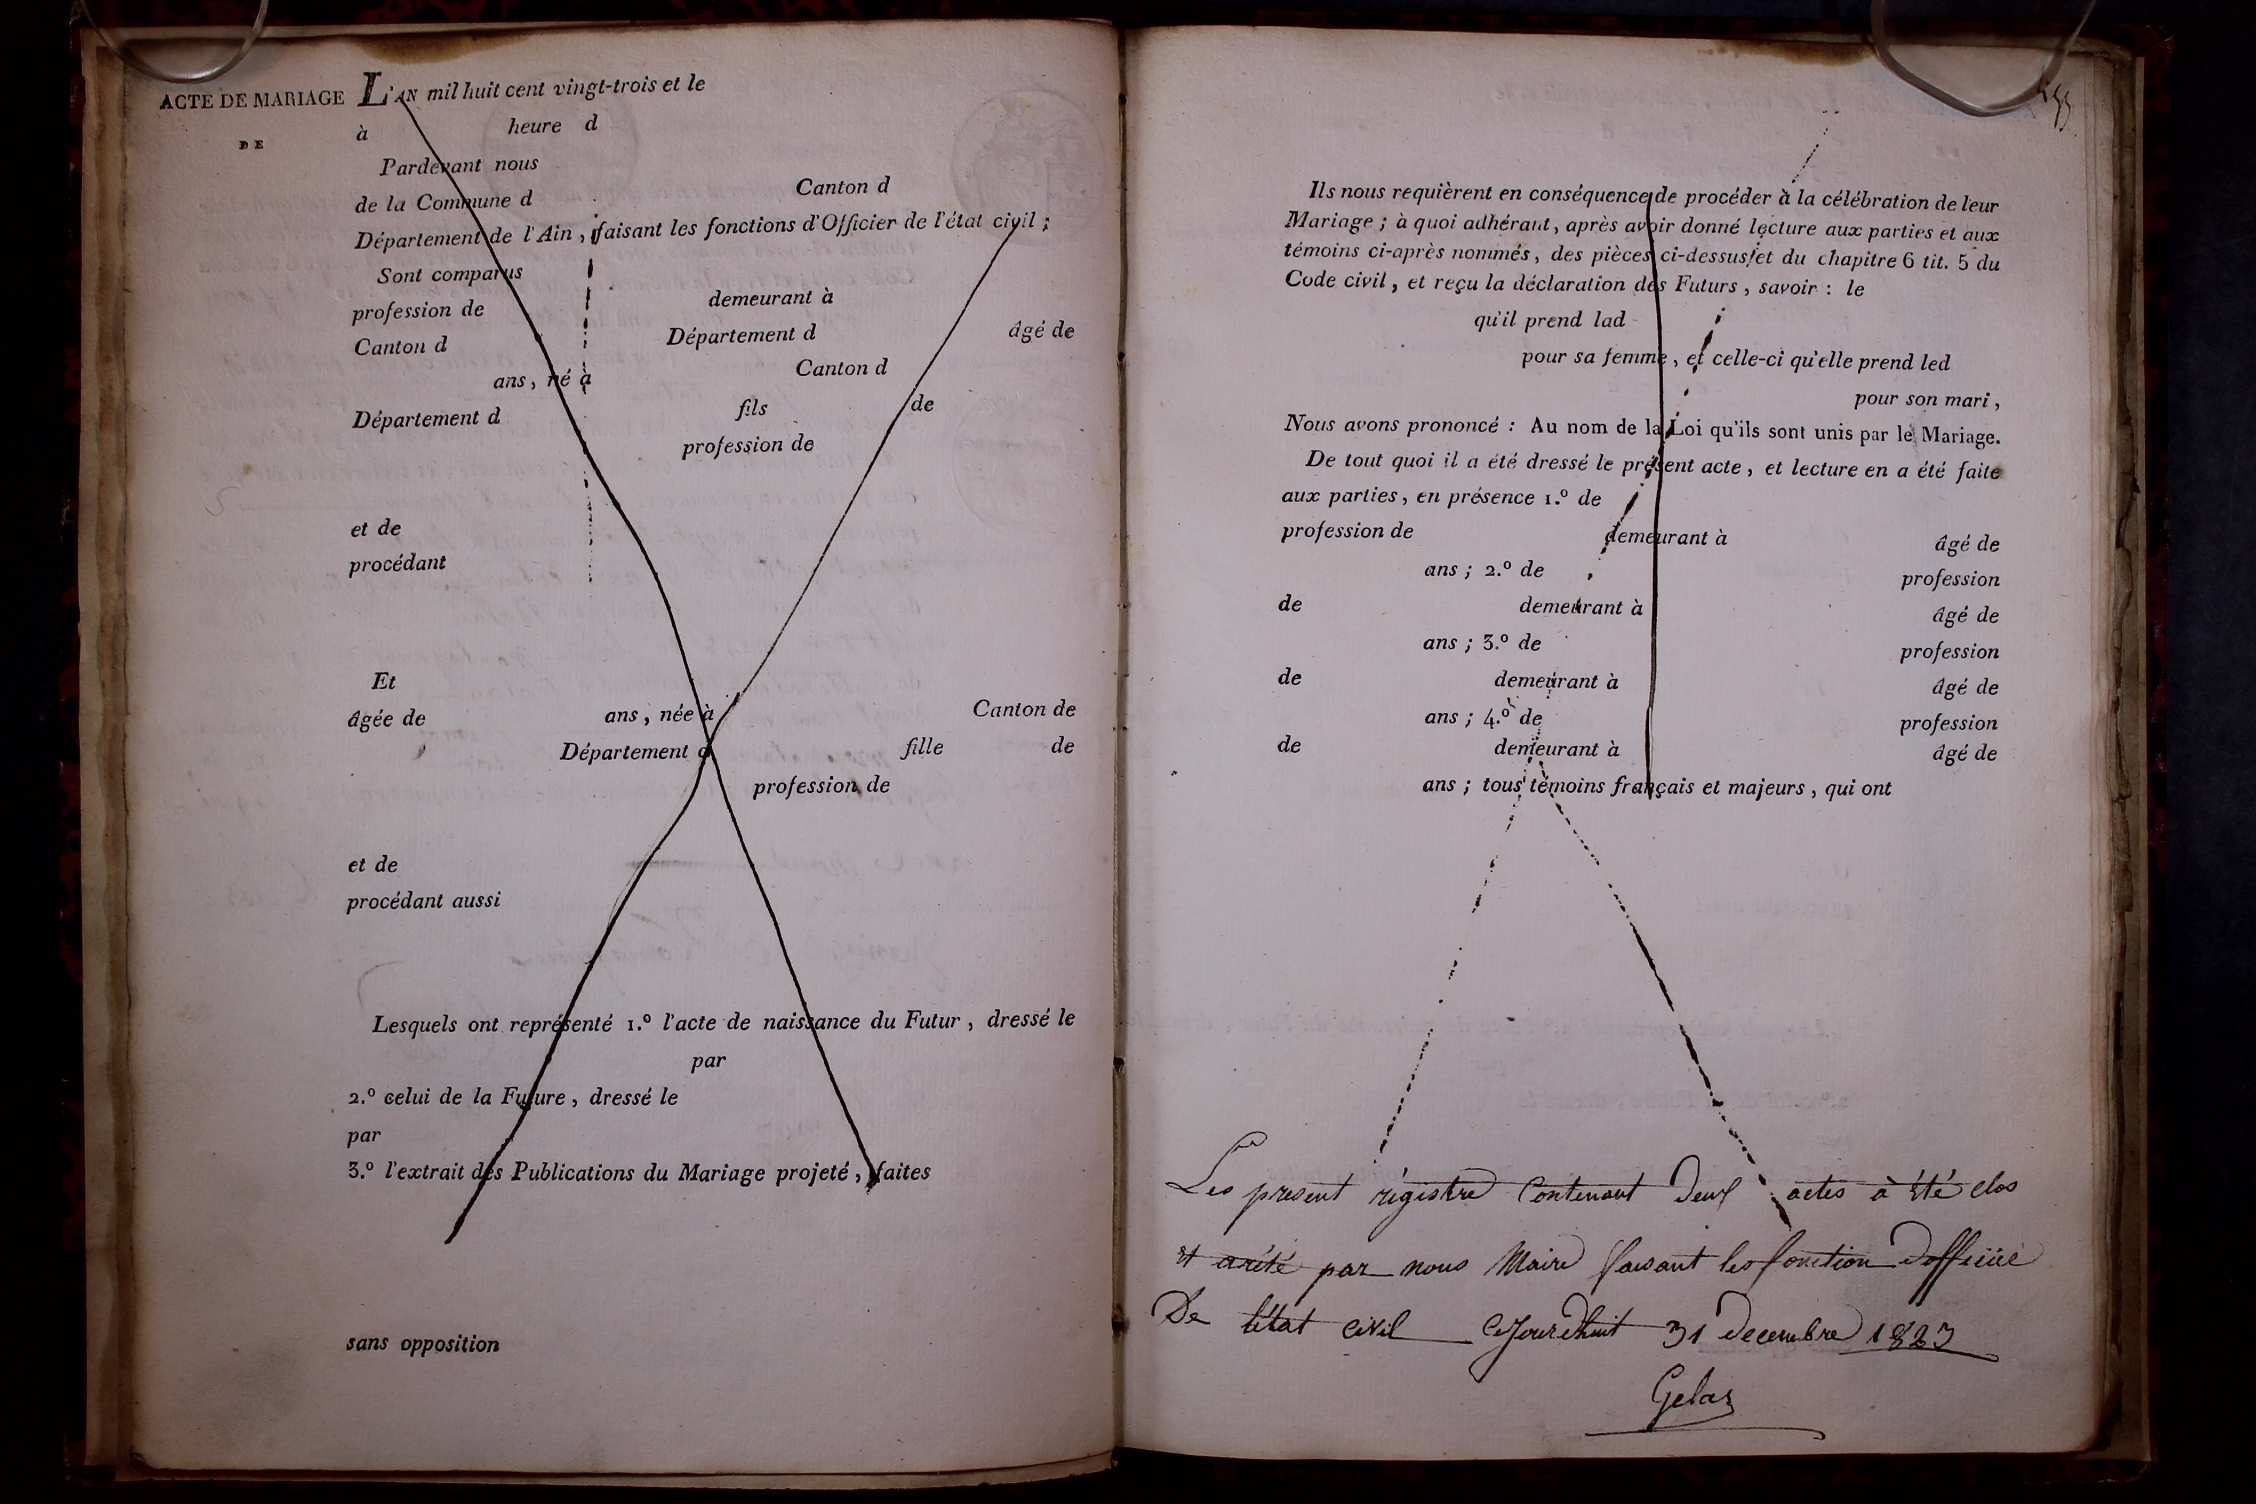 ACTE DE MARIAGE
DE
L'AN mil huit cent vingt-trois et le
à heure d
Pardevant nous
de la Commune d Canton d
Département de l'Ain, faisant les fonctions d'Officier de l'état civil ;
Sont comparus
profession de demeurant à
Canton d Département d âgé de
ans, né à Canton d
Département d fils de
profession de
et de
procédant
Et
âgée de ans, née à Canton de
Département d fille de
profession de
et de
procédant aussi
Lesquels ont représenté 1.º l'acte de naissance du Futur, dressé le
par
2.º celui de la Future, dressé le
par
3.º l'extrait des Publications du Mariage projeté, faites
sans opposition
Ils nous requièrent en conséquence de procéder à la célébration de leur
Mariage ; à quoi adhérant, après avoir donné lecture aux parties et aux
témoins ci-après nommés, des pièces ci-dessus et du chapitre 6 tit. 5 du
Code civil, et reçu la déclaration des Futurs, savoir : le
qu'il prend lad
pour sa femme, et celle-ci qu'elle prend led
pour son mari,
Nous avons prononcé : Au nom de la Loi qu'ils sont unis par le Mariage.
De tout quoi il a été dressé le présent acte, et lecture en a été faite
aux parties, en présence 1.º de
profession de demeurant à âgé de
ans ; 2.º de profession
de demeurant à âgé de
ans ; 3.º de profession
de demeurant à âgé de
ans ; 4.º de profession
de demeurant à âgé de
ans ; tous témoins français et majeurs, qui ont
Les present régistre contenant deux actes à été clos
et arêté par nous Maire faisant les fonction d'officié
De l'état civil Cejourdhuit 31 decembre 1823
Gelas